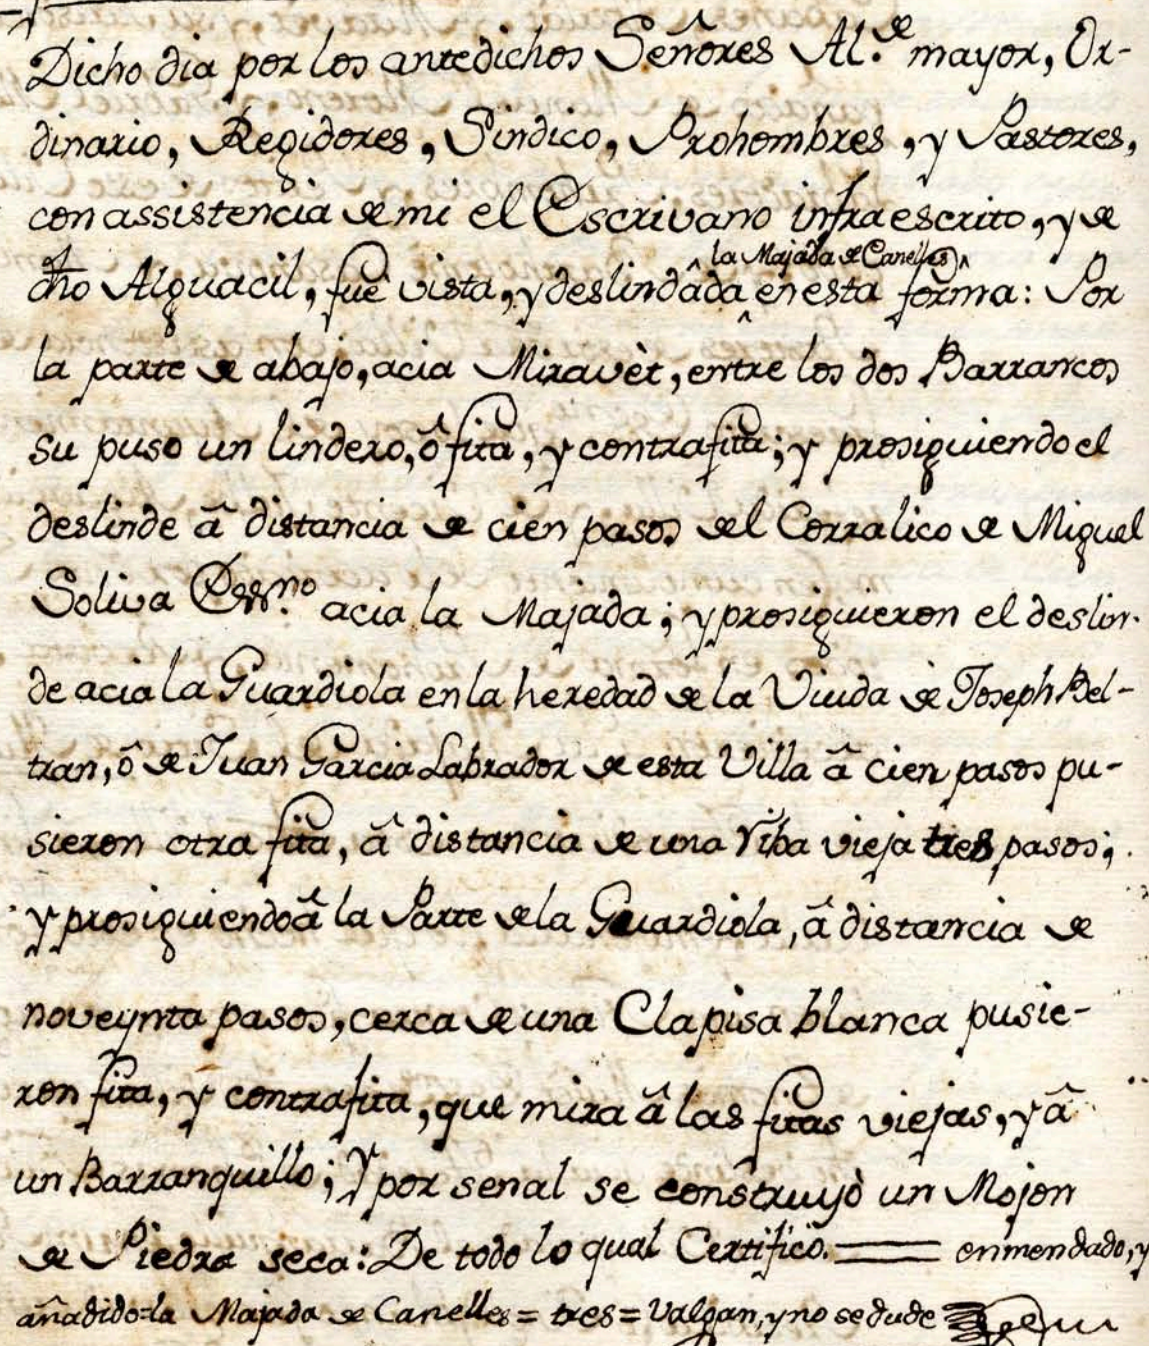 Dicho dia por los antedichos Señores Al.e mayor, Or-
dinario, Regidores, Sindico, Prohombres, y Pastores,
con assistencia de mi el Escrivano infraescrito, y de
la Majada de Canelles
dho Alguacil, fuè vista, y deslindâda en esta forma: Por
la parte de abajo, acia Miravèt, entre los dos Barrancos
su puso un lindero, ô fita, y contrafita; y prosiguiendo el
deslinde â distancia de cien pasos del Corralico de Miguel
Soliva Essno. acia la Majada; y prosiguieron el deslin-
de acia la Guardiola en la heredad de la Viuda de Joseph Bel-
tran, ô de Juan Garcia Labrador de esta Villa â cien pasos pu-
sieron otra fita, â distancia de una riba vieja tres pasos;
y prosiguiendo â la Parte de la Guardiola, â distancia de
noveynta pasos, cerca de una Clapisa blanca pusie-
ron fita, y contrafita, que mira â las fitas viejas, y â
un Barranquillo; Y por senal se construyò un Mojon
de Piedra seca: De todo lo qual Certifico. == enmendado, y
añadido=la Majada de Canelles = tres = Valgan, y no se dude